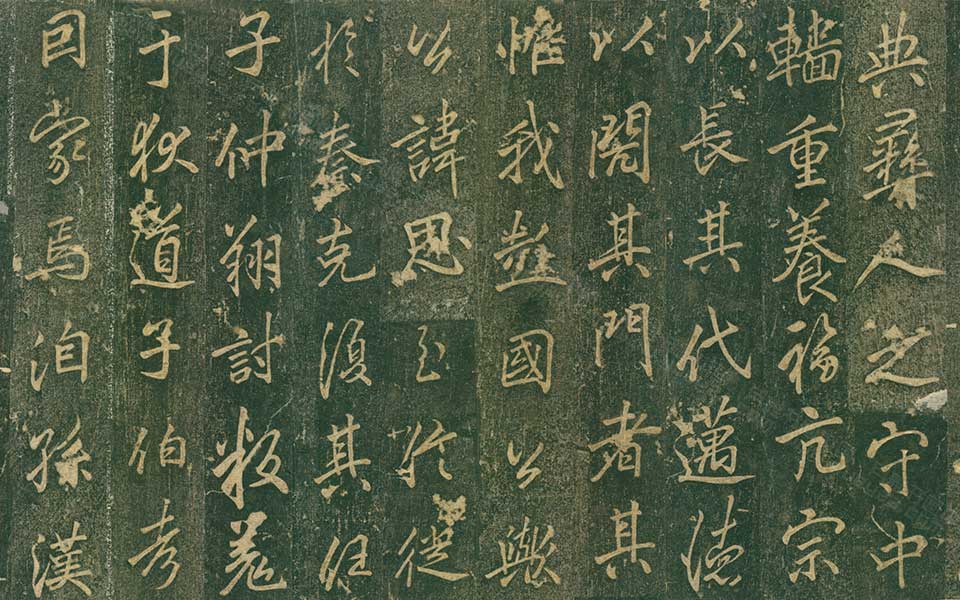 典彝人之守中
轖重養福亢宗
以長其代邁德
以闊其門者其
惟我彭國公歟
公諱思至於徙
於秦克復其任
子仲翔討叛羌
于狄道子伯考
因蒙焉洎孫漢